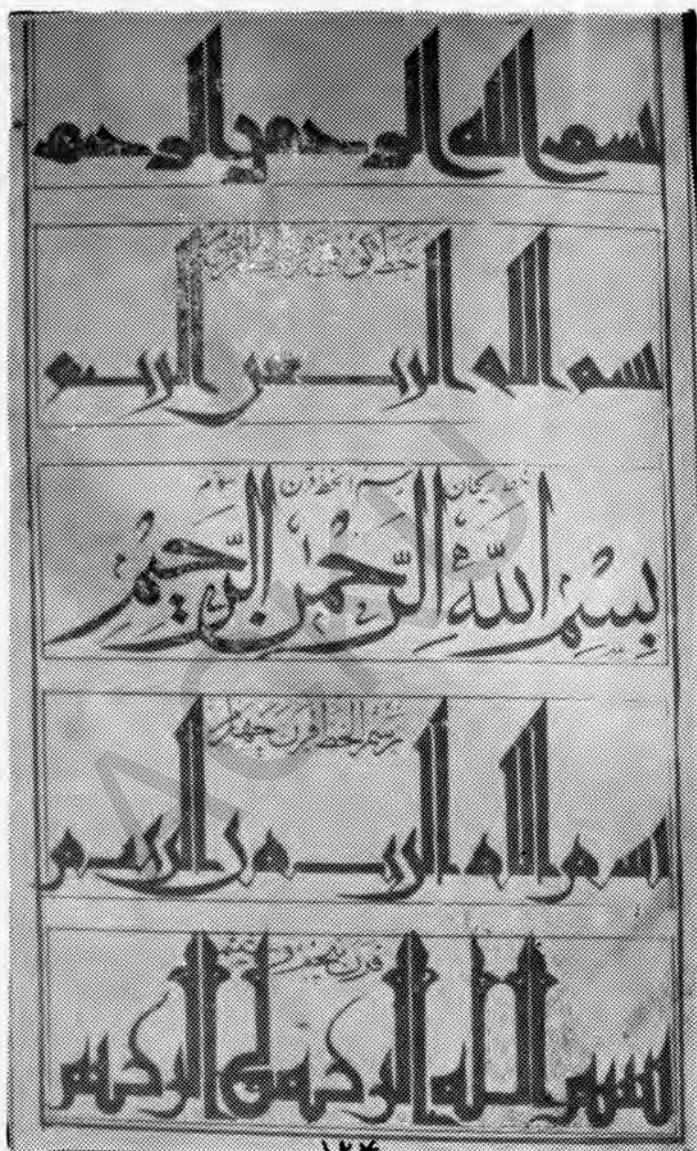 بسم الله الرحمن الرحیم
بسم الله الرحمن الرحیم
بخط ریحان رسم الخط قرن
بِسْمِ اللّٰهِ الرَّحْمٰنِ الرَّحِيْمِ
رسم الخط قرن چهارم
بسم الله الرحمن الرحیم
قرن پنجم و ششم
بسم الله الرحمن الرحیم
۱۲۴